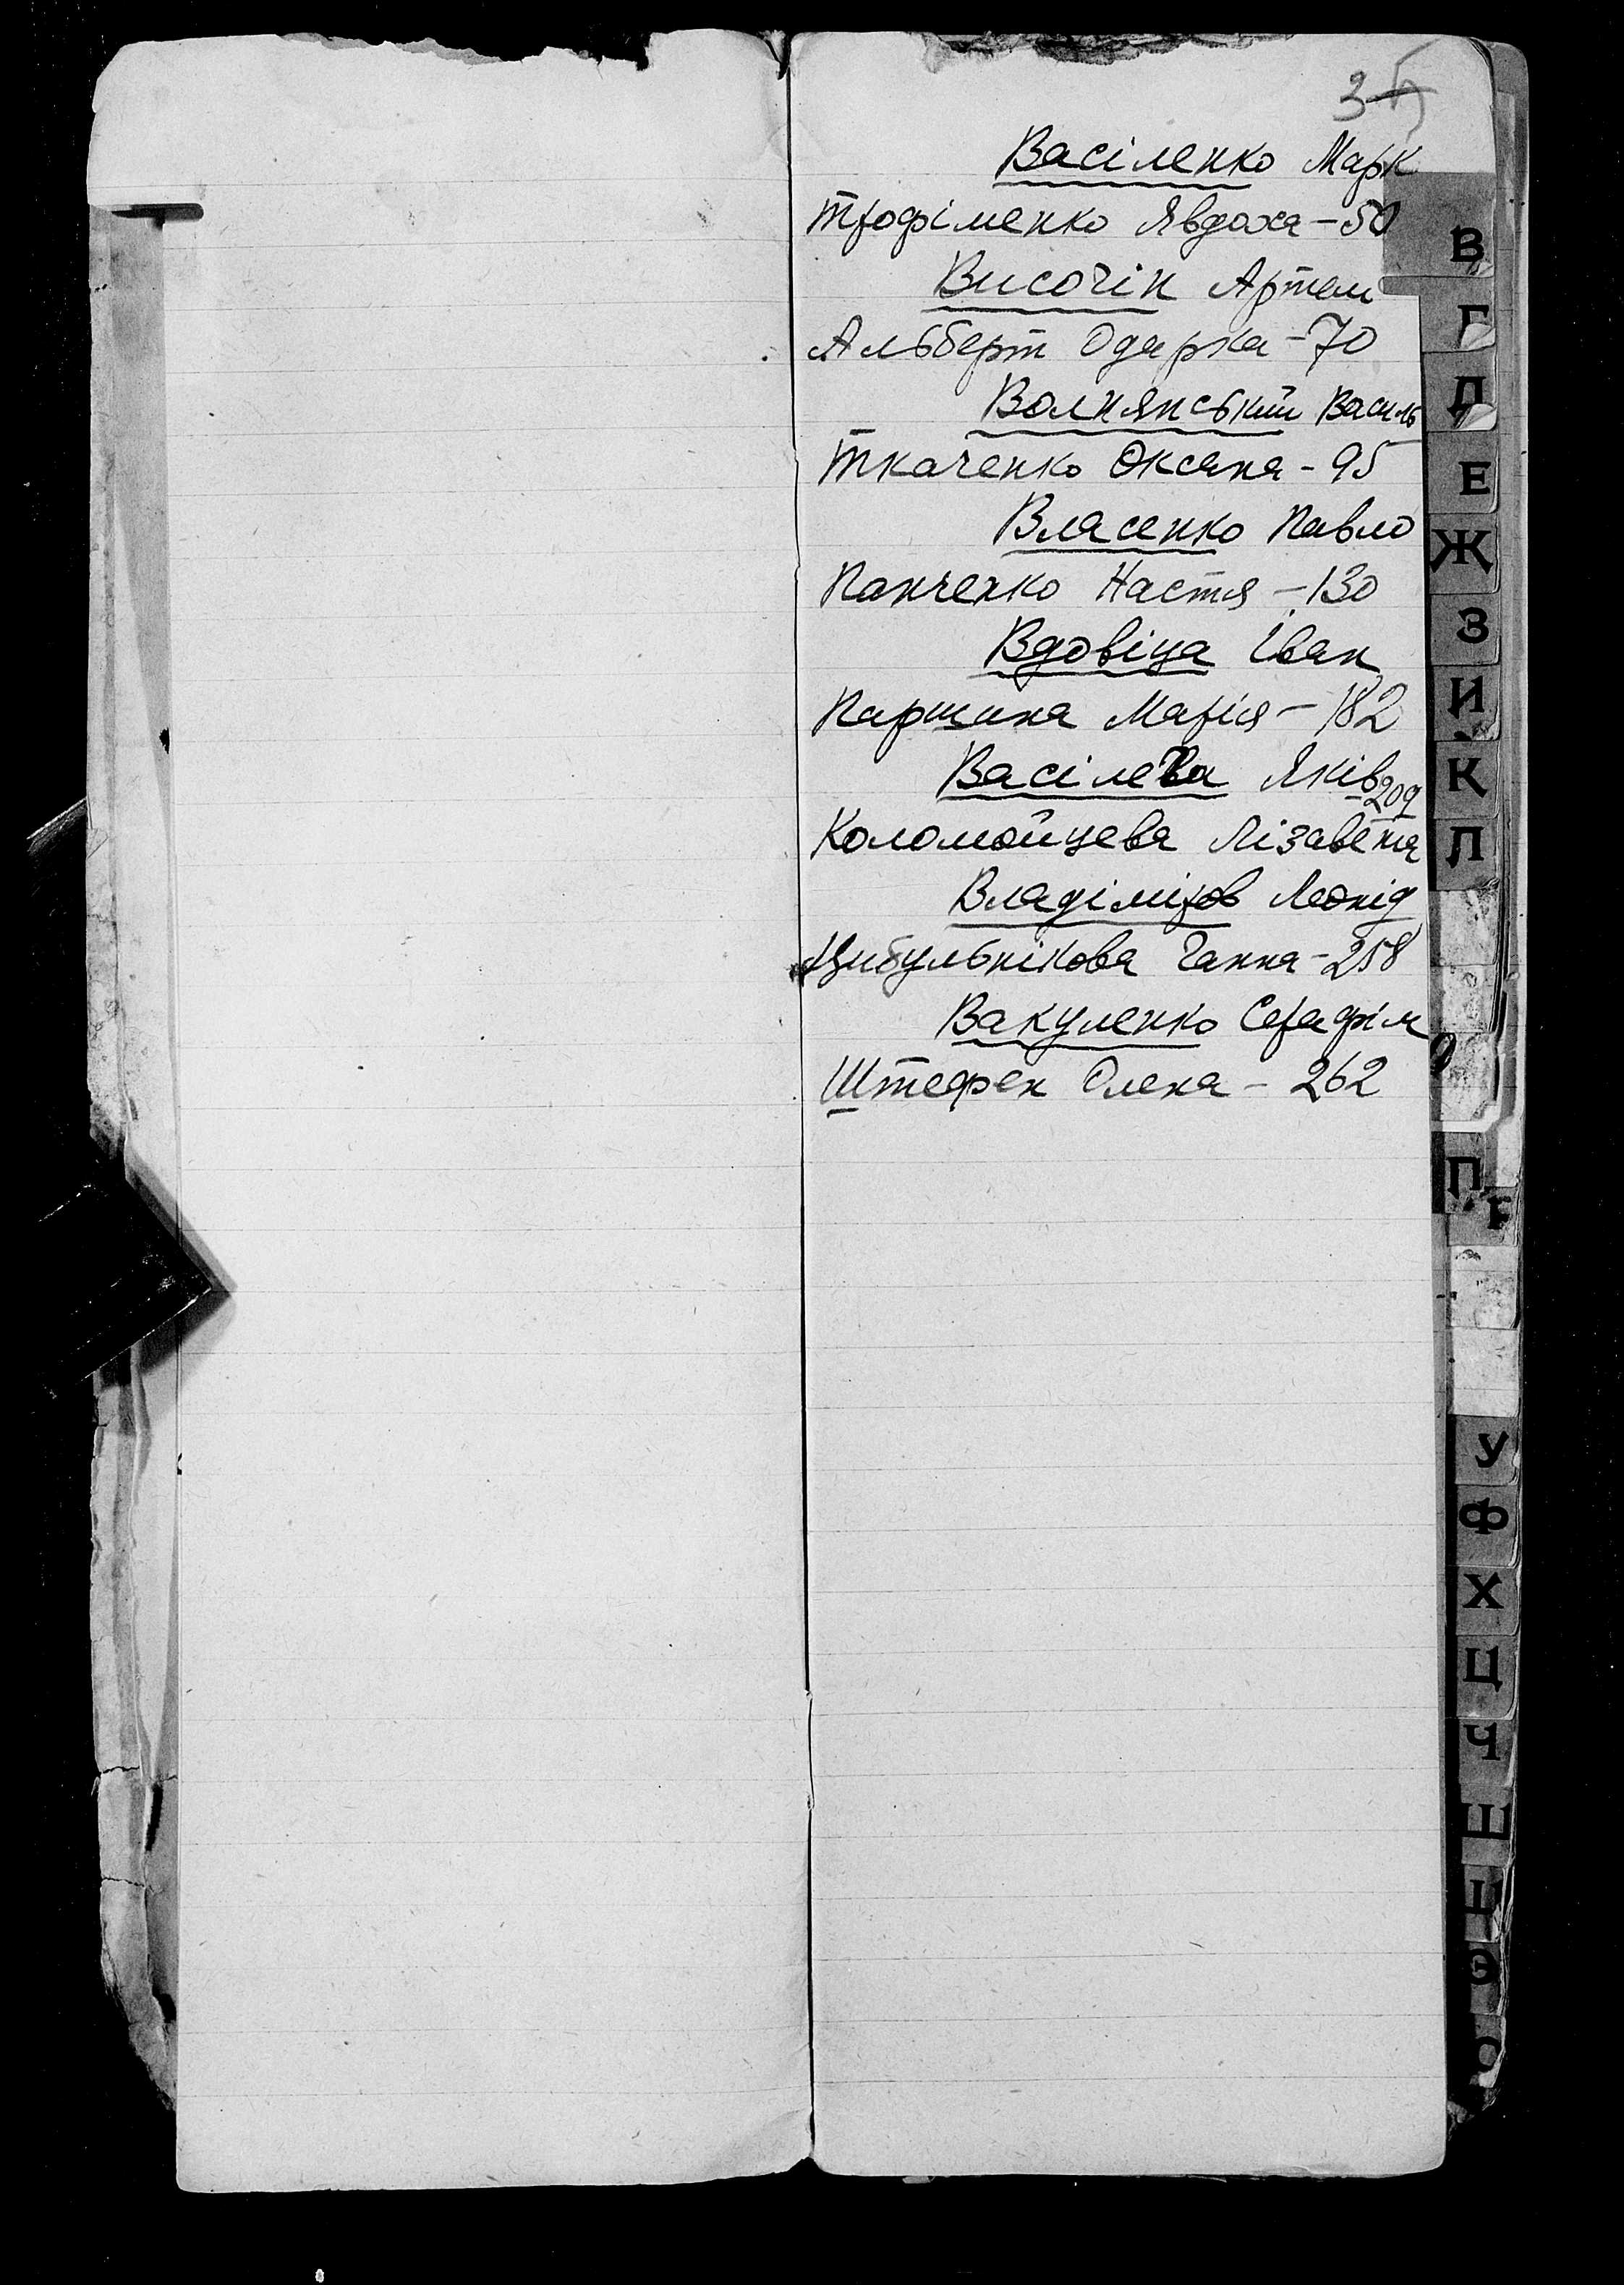 Васіленко Марк
Трофіменко Явдоха - 50
Височін Артем
Альберт Одарка - 70
Волнянський Василь
Ткаченко Оксана - 95
Власенко Павло
Панченко Настя - 130
Вдовіца Іван
Паршина Марія - 182
Васілева Яків
- 209
Коломойцева Лізавета
Владіміров Леонід
Цибульнікова Ганна - 258
Вакуленко Серафім
Штефен Олена - 262
В
Г
Д
Е
Ж
З
И
К
Л
П
У
Ф
Х
Ц
Ч
Ш